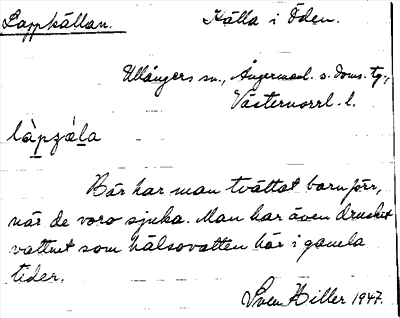 Lappkällan.
Källa i Öden.
Ullångers sn., Ångermanl. s. doms. tg.,
Västernorrl. l.
làpɟá̱la
Här har man tvättat barn förr,
när de voro sjuka. Man har även druckit
vattnet som hälsovatten här i gamla
tider.
Sven Hiller 1947.